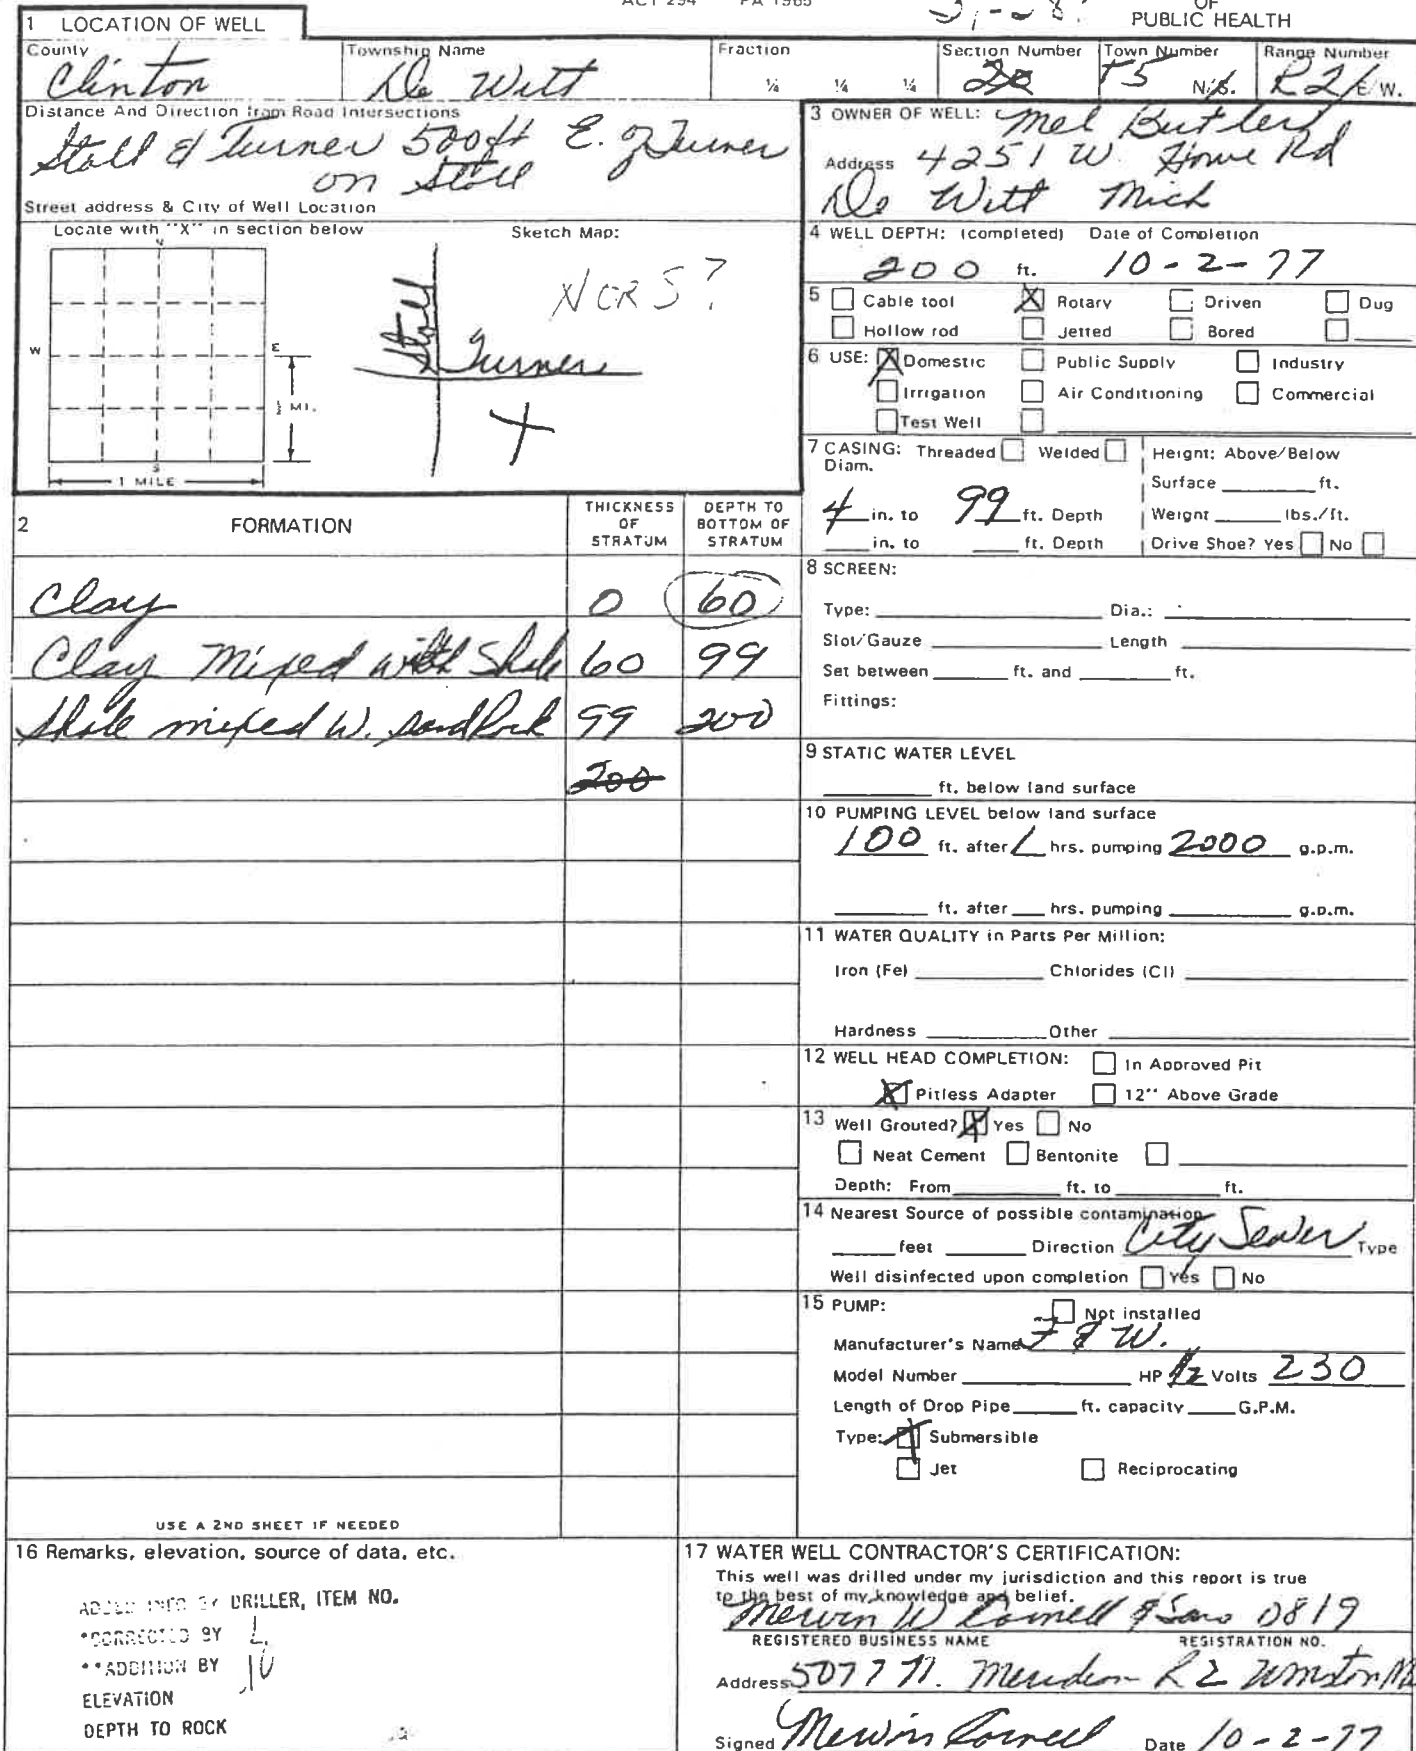 ACT 294 PA 1965
OF
PUBLIC HEALTH
1 LOCATION OF WELL
County
Clinton
Township Name
De Witt
Fraction
¼ ¼ ¼
Section Number
20
Town Number
T5 N/S.
Range Number
R2 E/W.
Distance And Direction from Road Intersections
Stoll & Turner 500 ft E. of Turner
on Stoll
Street address & City of Well Location
Locate with "X" in section below
Sketch Map:
W
E
S
½ MI.
1 MILE
N OR S?
Stoll
Turner
3 OWNER OF WELL: Mel Butler
Address 4251 W. Howe Rd
De Witt Mich
4 WELL DEPTH: (completed) Date of Completion
200 ft. 10-2-77
5 Cable tool X Rotary Driven Dug
Hollow rod Jetted Bored
6 USE: X Domestic Public Supply Industry
Irrigation Air Conditioning Commercial
Test Well
7 CASING: Threaded Welded
Diam.
4 in. to 99 ft. Depth
in. to ft. Depth
Height: Above/Below
Surface ft.
Weight lbs./ft.
Drive Shoe? Yes No
2 FORMATION
THICKNESS OF STRATUM
DEPTH TO BOTTOM OF STRATUM
Clay 0 60
Clay Mixed with Shale 60 99
Shale mixed W. sandRock 99 200
200
8 SCREEN:
Type: Dia.:
Slot/Gauze Length
Set between ft. and ft.
Fittings:
9 STATIC WATER LEVEL
ft. below land surface
10 PUMPING LEVEL below land surface
100 ft. after 1 hrs. pumping 2000 g.p.m.
ft. after hrs. pumping g.p.m.
11 WATER QUALITY in Parts Per Million:
Iron (Fe) Chlorides (Cl)
Hardness Other
12 WELL HEAD COMPLETION: In Approved Pit
X Pitless Adapter 12" Above Grade
13 Well Grouted? X Yes No
Neat Cement Bentonite
Depth: From ft. to ft.
14 Nearest Source of possible contamination
feet Direction City Sewer Type
Well disinfected upon completion Yes No
15 PUMP: Not installed
Manufacturer's Name F & W.
Model Number HP 1/2 Volts 230
Length of Drop Pipe ft. capacity G.P.M.
Type: X Submersible
Jet Reciprocating
USE A 2ND SHEET IF NEEDED
16 Remarks, elevation, source of data, etc.
ADDED INFO BY DRILLER, ITEM NO.
*CORRECTED BY
**ADDITION BY
ELEVATION
DEPTH TO ROCK
17 WATER WELL CONTRACTOR'S CERTIFICATION:
This well was drilled under my jurisdiction and this report is true
to the best of my knowledge and belief.
Mervin W Cornell & Sons 0819
REGISTERED BUSINESS NAME REGISTRATION NO.
Address 5077 N. Meridian R2
Signed Mervin Cornell Date 10-2-77